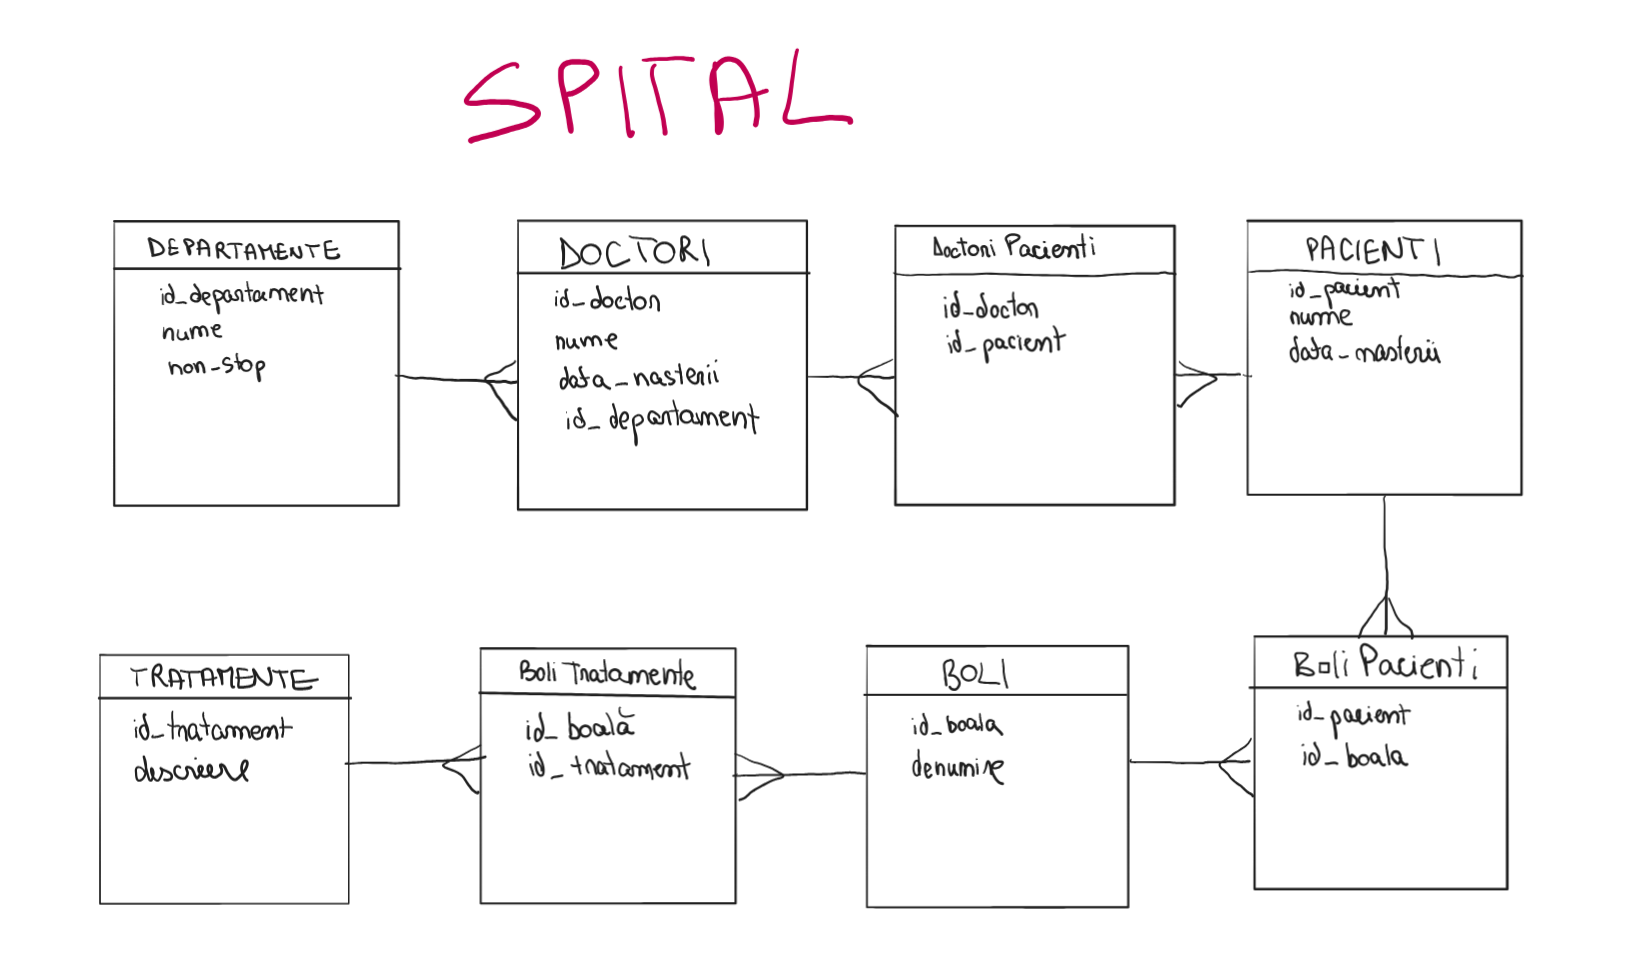 SPITAL
DEPARTAMENTE
id_departament
nume
non-stop
DOCTORI
id_doctor
nume
data_nasterii
id_departament
Doctori Pacienti
id_doctor
id_pacient
PACIENTI
id_pacient
nume
data_nasterii
TRATAMENTE
id_tratament
descriere
Boli Tratamente
id_boală
id_tratament
BOLI
id_boala
denumire
Boli Pacienti
id_pacient
id_boala